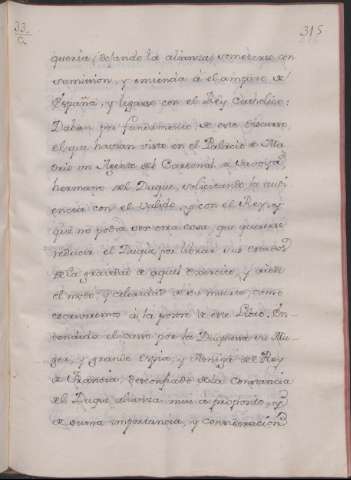 33. 315
queria (dejando la alianza) someterse con
sumision, y emienda à el amparo de
España, y ligarse con el Rey Catholico:
Daban por fundamento de este discurso,
el que havian visto en el Palacio de Ma-
drid un Agente del Cardenal de Saboya,
hermano del Duque, solicitando la audi-
encia con el Valido, y con el Rey, y
que no podia ser otra cosa, que quererse
reducir el Duque por librar sus estados
de la gravedad de aquel exercito, y
el modo, y celeridad de su muerte, como
escriviremos à la postre de este Libro. En-
tendido el caso por la Duquesa su Mu-
ger, y grande Espia, y Amiga del Rey
de Francia, desconfiado de la Constancia
del Duque alianza mui à proposito, y
de suma importancia, y consideracion